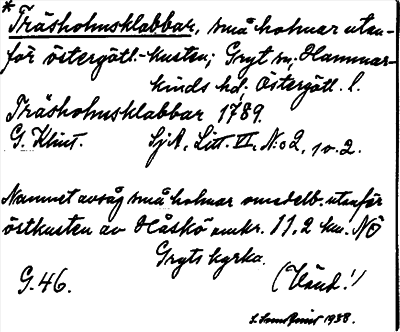 * Träsholmsklabbar, små holmar utan-
för östergötl.-kusten; Gryt sn, Hammar-
kinds hd, Östergötl. l.
Träsholmsklabbar 1789.
G. Klint. SjA, Litt. VI, No 2, 10. 2.
Namnet avsåg små holmar omedelb. utanför
östkusten av Håskö omkr. 11,2 km. NÖ
Gryts kyrka.
G. 46. (Vänd!)
1938.